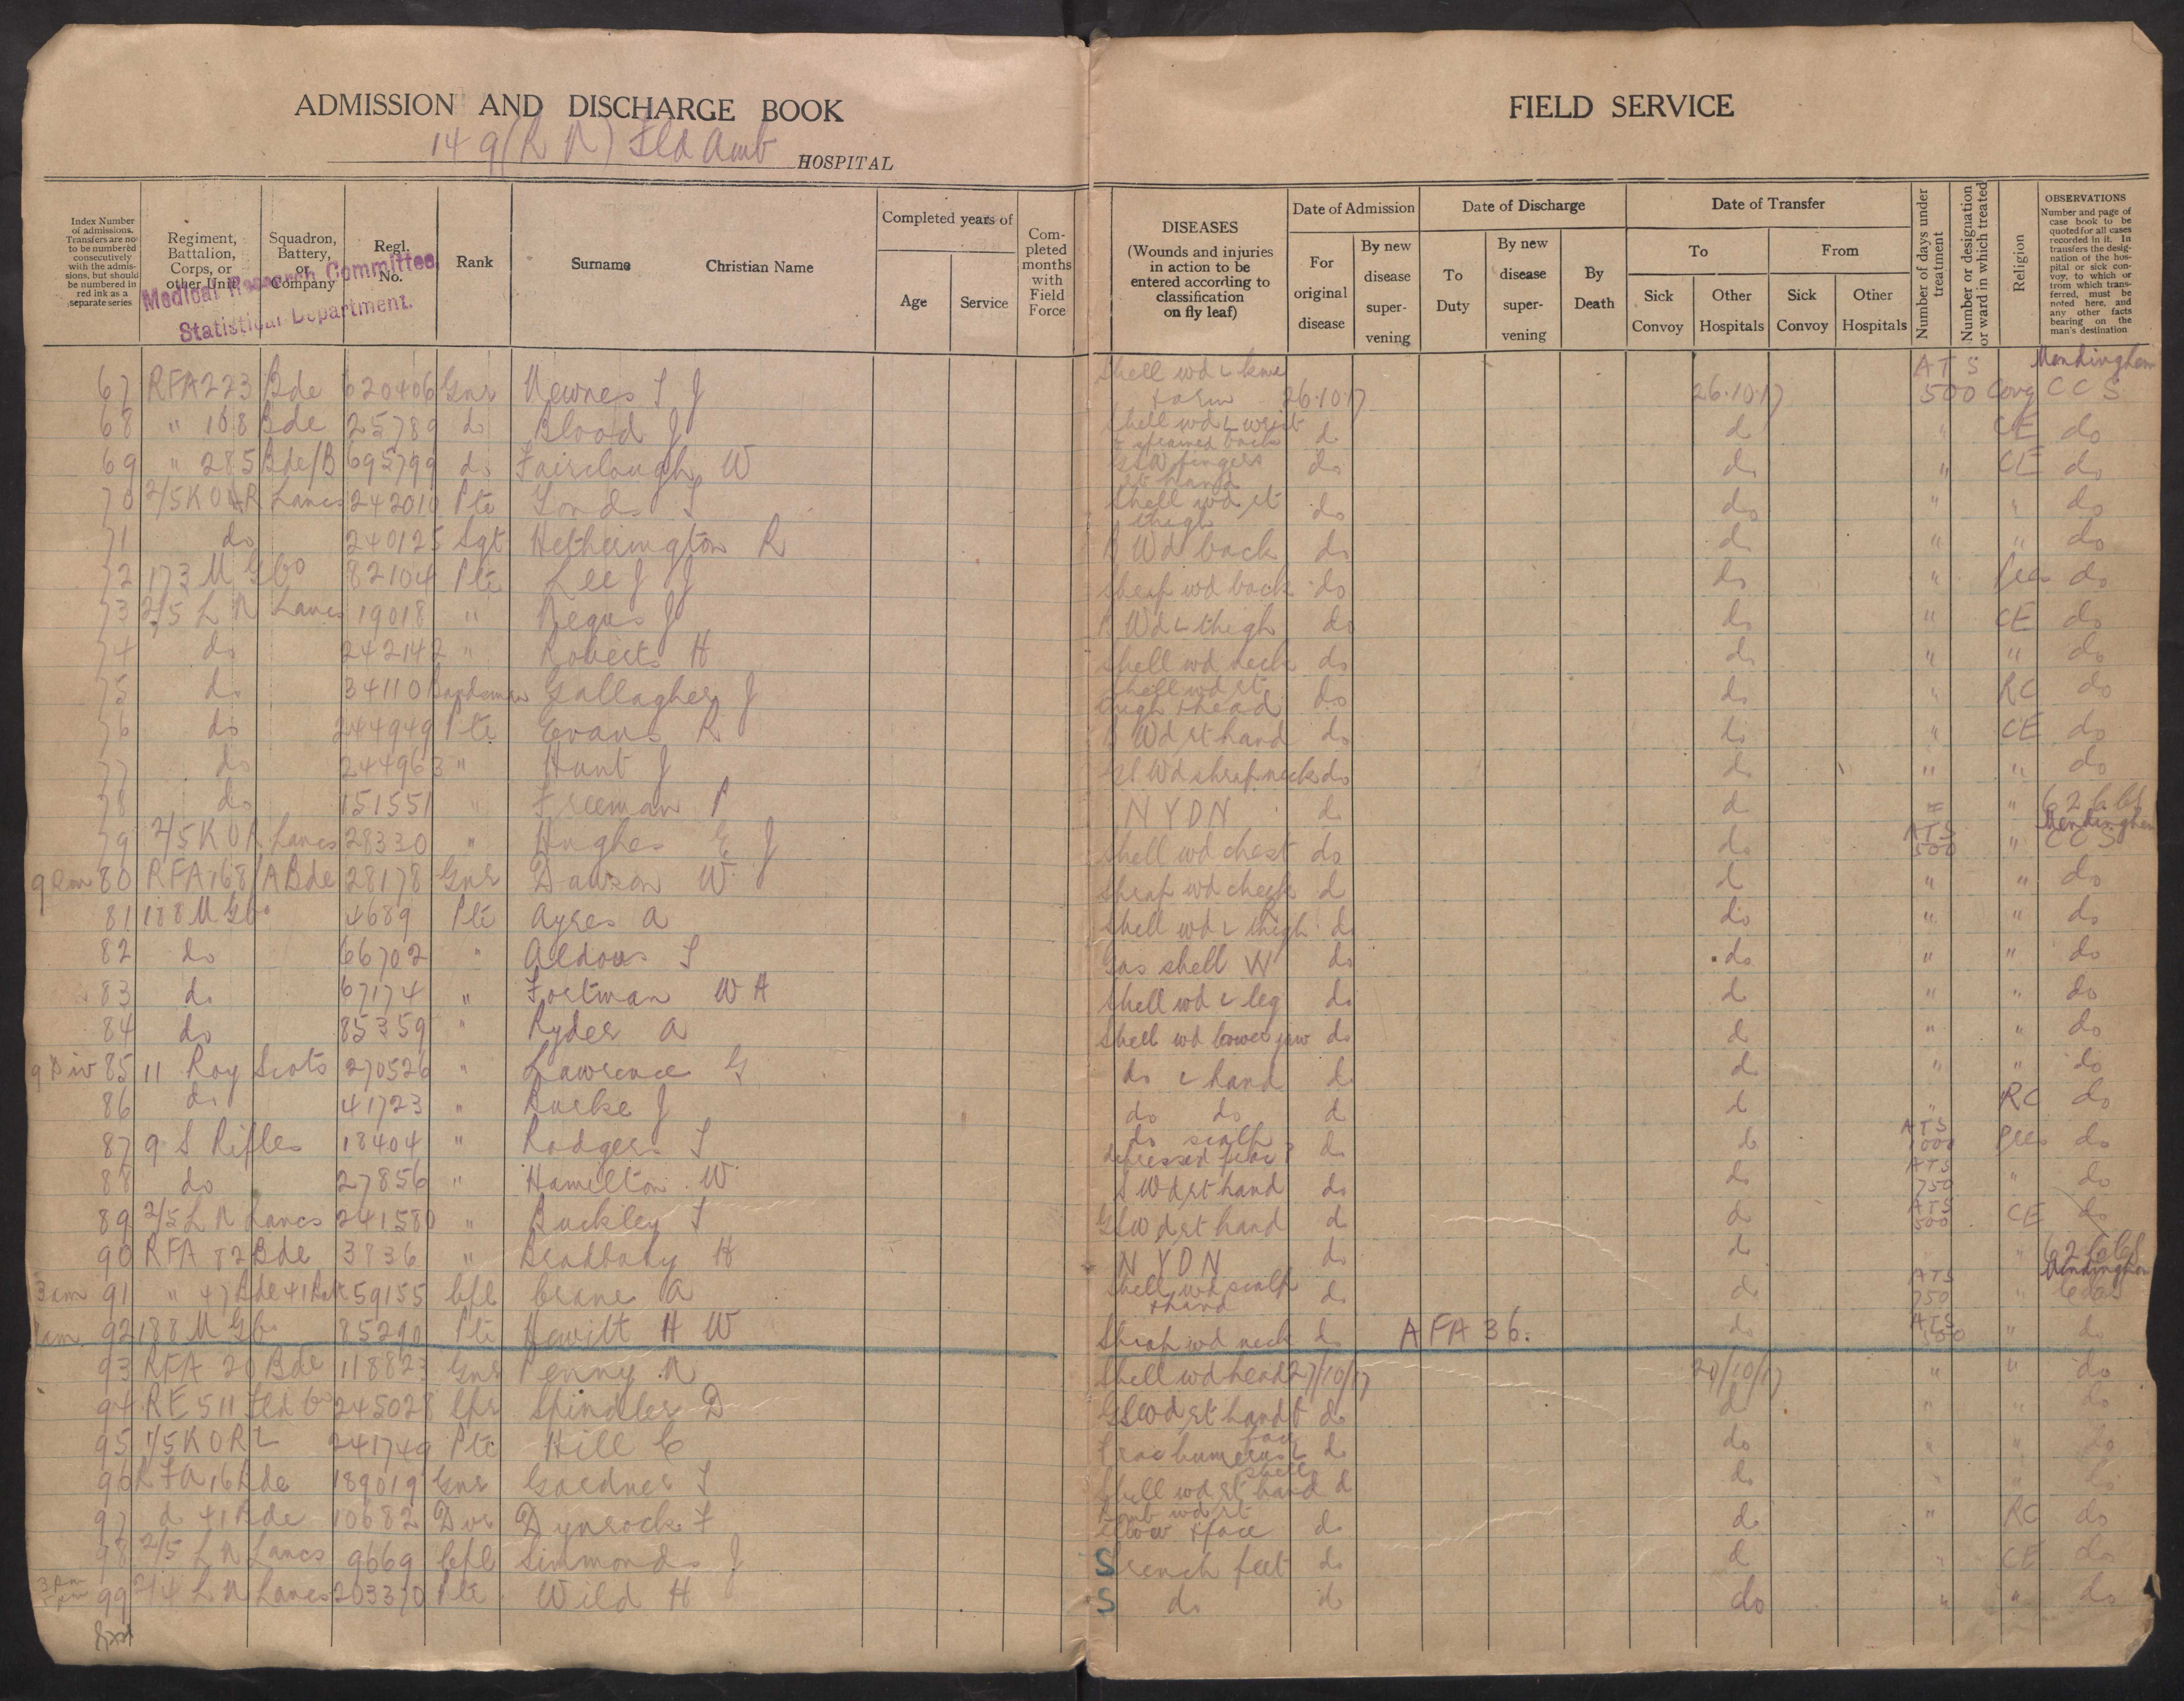 ADMISSION AND DISCHARGE BOOK
149 (R N) Fld Amb HOSPITAL
FIELD SERVICE
Index Number of admissions. Transfers are no to be numbered consecutively with the admissions, but should be numbered in red ink as a separate series
Regiment, Battalion, Corps, or other Unit
Squadron, Battery, or Company
Regl. No.
Rank
Surname Christian Name
Completed years of
Age
Service
Completed months with Field Force
Medical Research Committee
Statistical Department.
DISEASES
(Wounds and injuries in action to be entered according to classification on fly leaf)
Date of Admission
For original disease
By new disease supervening
Date of Discharge
To Duty
By new disease supervening
By Death
Date of Transfer
To
From
Sick Convoy
Other Hospitals
Sick Convoy
Other Hospitals
Number of days under treatment
Number or designation or ward in which treated
Religion
OBSERVATIONS
Number and page of case book to be quoted for all cases recorded in it. In transfers the designation of the hospital or sick convoy, to which or from which transferred, must be noted here, and any other facts bearing on the man's destination
67 RFA 223 Bde 620406 Gnr Newnes J Shell wd L knee 26.10.17 26.10.17 ATS 500 Cong Mendinghem CCS
68 " 168 Bde 25789 do Blood J Shell wd L wrist & back do do " CE do
69 " 285 Bde/B 695799 do Fairclough W GSW fingers rt hand do do " CE do
70 2/5 KO R Lancs 242010 Pte Shell wd rt thigh do do " " do
71 do 240125 Sgt Hetherington R B Wd back do do " " do
72 173 M G Co 82104 Pte Lee J J Shrap wd back do do " do
73 2/5 L N Lancs 19018 " Negus J B Wd L thigh do do " CE do
74 do 242142 " Roberts H Shell wd neck do do " " do
75 do 34110 Bandsman Gallagher J Shell wd rt thigh & head do do " RC do
76 do 244949 Pte Evans R B Wd rt hand do do " CE do
77 do 244963 " Hunt J Wd shrap neck do do " " do
78 do 151551 " Freeman P N Y D N do do " 62
79 2/5 K O R Lancs 28330 " Hughes E J Shell wd chest do do ATS 500 " Mendinghem CCS
80 RFA 168/A Bde 28178 Gnr Dawson W Shrap wd cheek do do " " do
81 188 M G Co 4689 Pte Ayres A Shell wd L thigh do do " " do
82 do 66702 " Aldous Gas shell W do do " " do
83 do 67174 " Fortman W H Shell wd L leg do do " " do
84 do 85359 " Ryder A Shell wd lower jaw do do " " do
9 Div 85 11 Roy Scots 270526 " Lawrence G do L hand do do " " do
86 do 41723 " J do do do do " RC do
87 9 S Rifles 18404 " Rodgers do scalp depressed do do ATS 1000 do
88 do 27856 " Hamilton W S Wd rt hand do do ATS 750 " do
89 2/5 L N Lancs 241580 " Buckley GSWd rt hand do do ATS 500 CE do
90 RFA 82 Bde 3836 " Bradbury H N Y D N do do " 62
3 am 91 " 47 Bde 59155 Cpl Crane A Shell wd scalp & hand do do ATS 750 " Mendinghem
92 188 M G Co 85290 Pte Hewitt H W Shrap wd neck do AFA 36. do ATS 500 " do
93 RFA 20 Bde 118823 Gnr Penny N Shell wd head 27/10/17 " " do
94 RE 511 Fld Co 245028 Spr Spindler D GSWd rt hand do do " " do
95 1/5 K O R L 241749 Pte Hill C Frac humerus do do " " do
96 RFA 16 Bde 189019 Gnr Gardner Shell wd rt hand do do " " do
97 do 41 Bde 10682 Dvr Bomb wd rt elbow & face do do " RC do
98 2/5 L N Lancs 9669 Cpl Simmonds J S Trench feet do do " CE do
99 2/4 L N Lancs 203370 Pte Wild H S do do do " " do